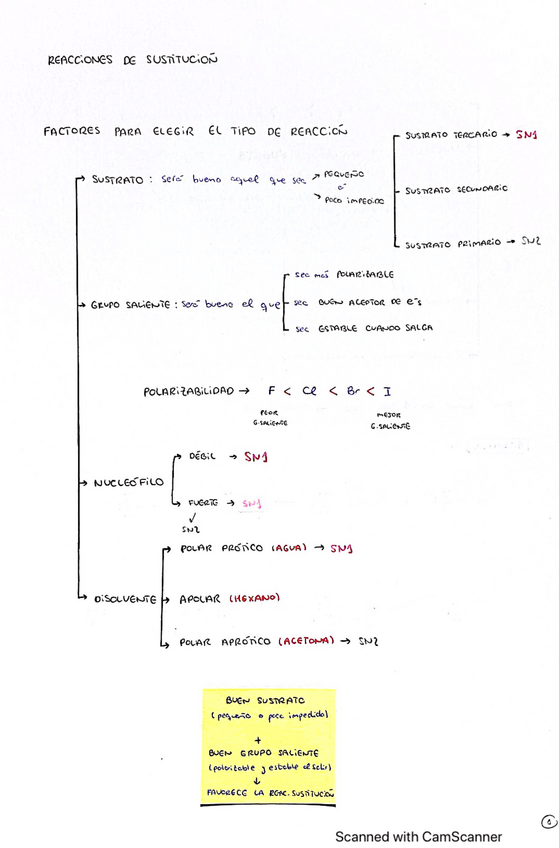 REACCIONES DE SUSTITUCIÓN
FACTORES PARA ELEGIR EL TIPO DE REACCIÓN
SUSTRATO TERCARIO → SN1
SUSTRATO : será bueno aquel que sea → PEQUEÑO
ó
→ POCO IMPEDIDO
SUSTRATO SECUNDARIO
SUSTRATO PRIMARIO → SN2
sea más POLARIZABLE
GRUPO SALIENTE : será bueno el que
sea BUEN ACEPTOR DE e⁻s
sea ESTABLE CUANDO SALGA
POLARIZABILIDAD → F < Cl < Br < I
PEOR
G.SALIENTE
MEJOR
G.SALIENTE
DÉBIL → SN1
NUCLEÓFILO
FUERTE → SN1
✓
SN2
POLAR PRÓTICO (AGUA) → SN1
DISOLVENTE → APOLAR (HEXANO)
POLAR APRÓTICO (ACETONA) → SN2
BUEN SUSTRATO
(pequeño o poco impedido)
+
BUEN GRUPO SALIENTE
(polarizable y estable al salir)
↓
FAVORECE LA REAC. SUSTITUCIÓN
Scanned with CamScanner